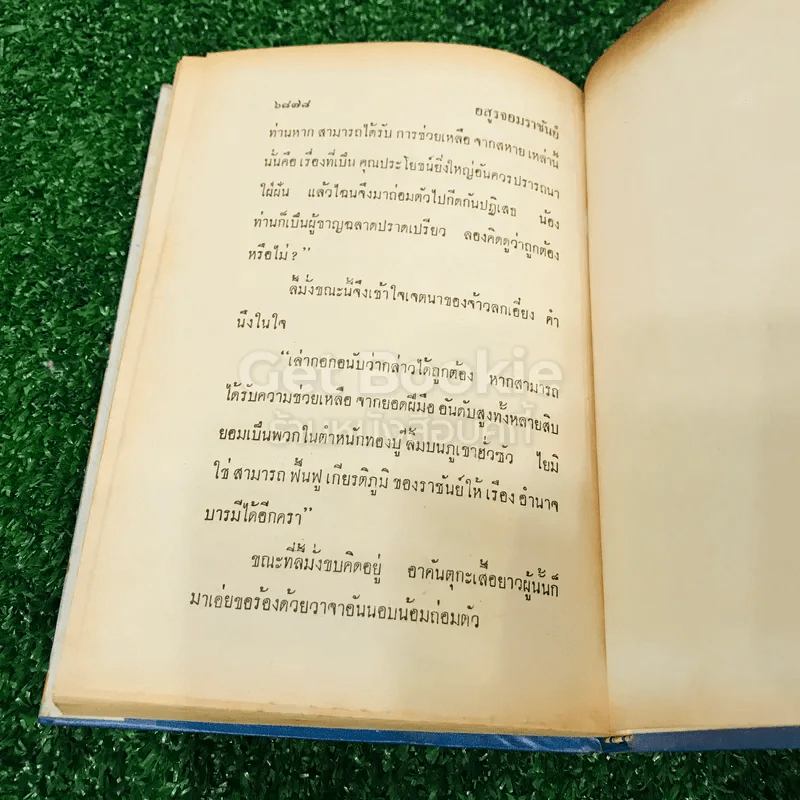 ๖๘๗๘
อสูรจอมราชันย์
ท่านหาก สามารถได้รับ การช่วยเหลือ จากสหาย เหล่านี้
นั้นคือ เรื่องที่เป็น คุณประโยชน์ยิ่งใหญ่อันควร ปรารถนา
ใฝ่ฝัน แล้วไฉนจึงมาถ่อมตัวไปกีดกันปฏิเสธ น้อง
ท่านก็เป็นผู้ชาญฉลาดปราดเปรียว ลองคิดดูว่าถูกต้อง
หรือไม่?"
ลี้มั่งขณะนี้จึงเข้าใจเจตนาของจ้าวลกเอี่ยง คำ
นึงในใจ
"เล่ากอกอนับว่ากล่าวได้ถูกต้อง หากสามารถ
ได้รับความช่วยเหลือ จากยอดฝีมือ อันดับสูงทั้งหลายสิบ
ยอมเป็นพวกในตำหนักทองบู๊ลิ้มบนภูเขาฮั้วซัว ไยมิ
ใช่ สามารถ ฟื้นฟู เกียรติภูมิ ของราชันย์ให้ เรือง อำนาจ
บารมีได้อีกครา"
ขณะที่ลี้มั่งขบคิดอยู่ อาคันตุกะเสื้อยาวผู้นั้นก็
มาเอ่ยขอร้องด้วยวาจาอันนอบน้อมถ่อมตัว
Get Bookie
ร้านหนังสือบุคกี้